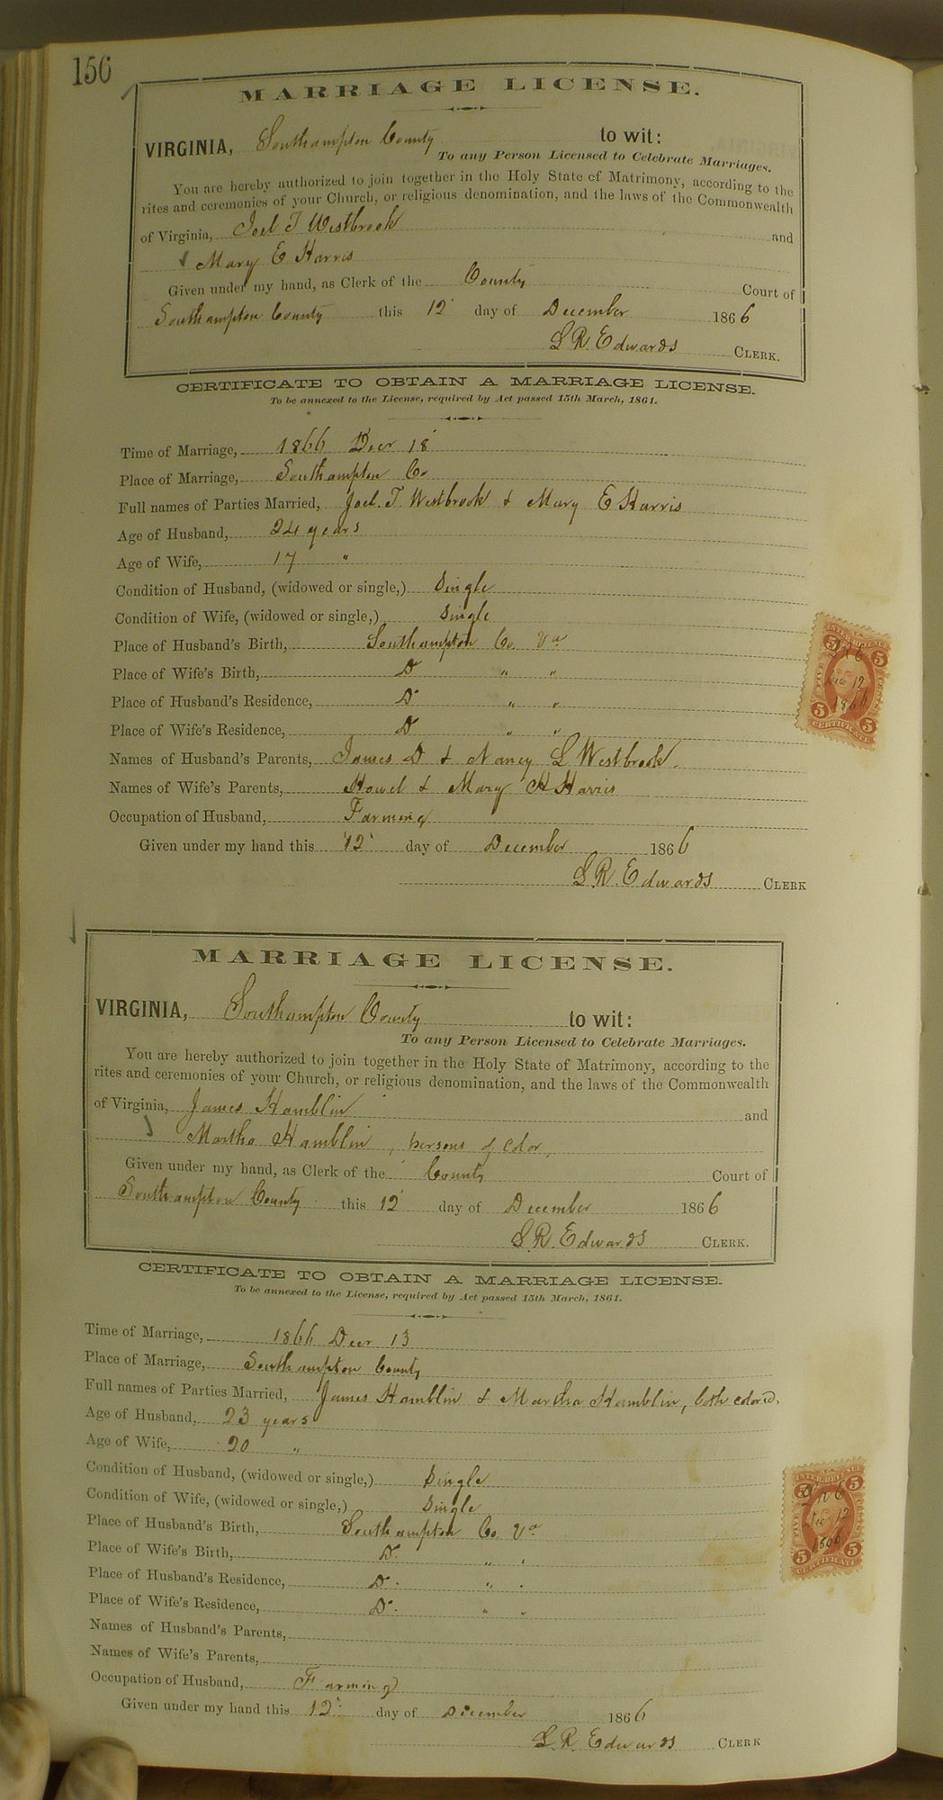 156
MARRIAGE LICENSE.
VIRGINIA, Southampton County to wit:
To any Person Licensed to Celebrate Marriages.
You are hereby authorized to join together in the Holy State of Matrimony, according to the
rites and ceremonies of your Church, or religious denomination, and the laws of the Commonwealth
of Virginia, Joel T Westbrook and
Mary E Harris
Given under my hand, as Clerk of the County Court of
Southampton County this 12 day of December 1866
L R. Edwards CLERK.
CERTIFICATE TO OBTAIN A MARRIAGE LICENSE.
To be annexed to the License, required by Act passed 15th March, 1861.
Time of Marriage, 1866 Decr 18
Place of Marriage, Southampton Co
Full names of Parties Married, Joel T Westbrook & Mary E Harris
Age of Husband, 24 years
Age of Wife, 17 "
Condition of Husband, (widowed or single,) Single
Condition of Wife, (widowed or single,) Single
Place of Husband's Birth, Southampton Co. Va
Place of Wife's Birth, Do " "
Place of Husband's Residence, Do " "
Place of Wife's Residence, Do " "
Names of Husband's Parents, James D & Nancy L Westbrook.
Names of Wife's Parents, Howel & Mary H Harris
Occupation of Husband, Farming
Given under my hand this 12 day of December 1866
L R. Edwards CLERK
INTER. REVENUE
5 5
FIVE CENTS
LRE
Dec 12
1866
5 5
CERTIFICATE
MARRIAGE LICENSE.
VIRGINIA, Southampton County to wit:
To any Person Licensed to Celebrate Marriages.
You are hereby authorized to join together in the Holy State of Matrimony, according to the
rites and ceremonies of your Church, or religious denomination, and the laws of the Commonwealth
of Virginia, James Hamblin and
Martha Hamblin, persons of Color,
Given under my hand, as Clerk of the County Court of
Southampton County this 12 day of December 1866
L. R. Edwards CLERK.
CERTIFICATE TO OBTAIN A MARRIAGE LICENSE.
To be annexed to the License, required by Act passed 15th March, 1861.
Time of Marriage, 1866 Decr 13
Place of Marriage, Southampton County
Full names of Parties Married, James Hamblin & Martha Hamblin, both colored.
Age of Husband, 23 years
Age of Wife, 20 "
Condition of Husband, (widowed or single,) Single
Condition of Wife, (widowed or single,) Single
Place of Husband's Birth, Southampton Co. Va
Place of Wife's Birth, Do. " "
Place of Husband's Residence, Do. " "
Place of Wife's Residence, Do. " "
Names of Husband's Parents,
Names of Wife's Parents,
Occupation of Husband, Farming
Given under my hand this 12 day of December 1866
L. R. Edwards CLERK
INTER. REVENUE
5 5
FIVE CENTS
LRE
Dec 12
1866
5 5
CERTIFICATE